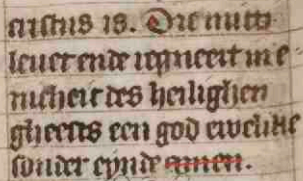 cristus is. Die mitti
leuet ende regneert in e
nicheit des heilighen
gheests een god ewelike
sonder eynde amen.